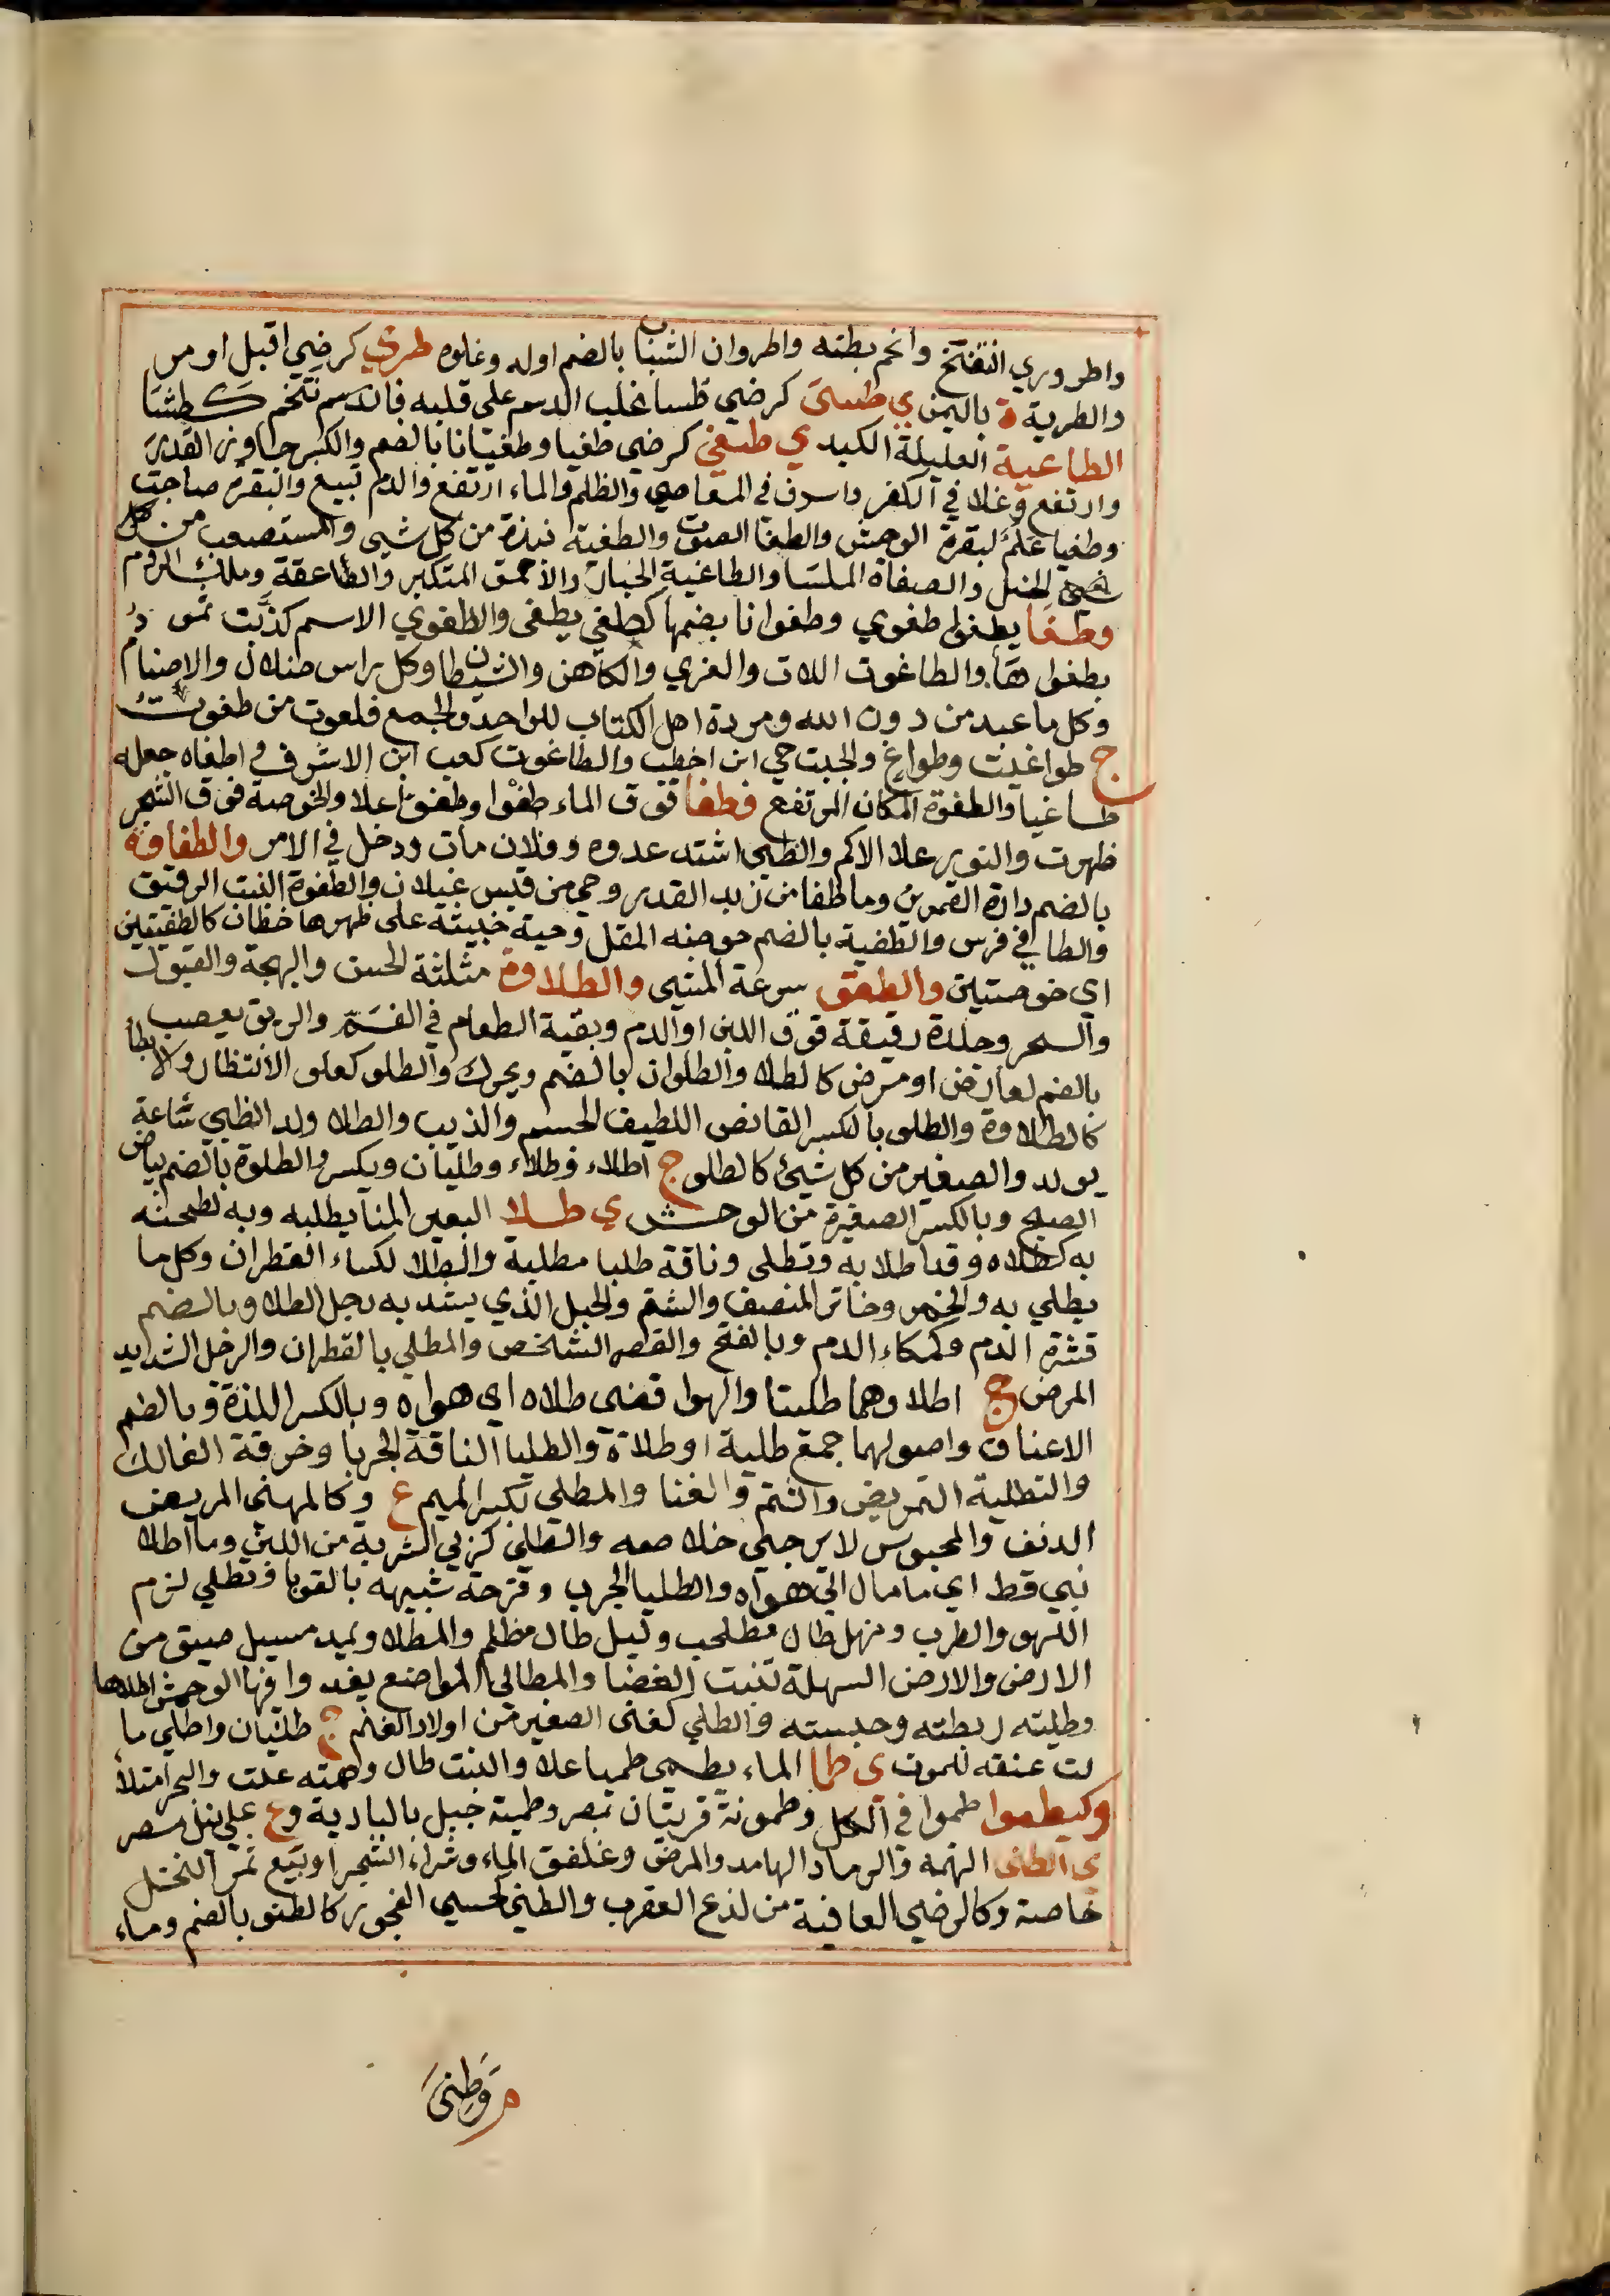 واطروري انتفخ وانخم بطنه واطروان الشباب بالضم اوله وغلوه طري كرضي اقبل او مر
والطرية ة باليمن ي طسى كرضي طسا غلب الدسم على قلبه فاندسم تتخم كطشا
الطاعية العليلة الكبد ي طغي كرضي طغيا وطغيانا بالضم والكسر جاوز القدر
وارتفع وغلا في الكفر واسرف في المعاصي والظلم والماء ارتفع والدم تبيع والبقرة صاحت
وطغيا علم لبقرة الوحش والطغا الصوت والطغية نبذة من كل شيى والمستصعب من كل
الخيل والصفاة الملسا والطاغية الجبار والاحمق المتكبر والطاعقة وملك الروم
وطغا يطغوا طغوي وطغوانا بضمهما كطغي يطغى والطغوي الاسم كذبت ثمود
بطغواها والطاغوت اللات والعزي والكاهن والشيطان وكل راس ضلال والاصنام
وكل ما عبد من دون الله ومردة اهل الكتاب للواحد والجمع فلعوت من طغوت
ج طواغيت وطواغ والجبت حي ابن اخطب والطاغوت كعب ابن الاشرف و اطغاه جعله
طاغيا والطغوة المكان المرتفع فطفا فوق الماء طفوا وطفوا علا والخوصة فوق الشجر
ظهرت والثور علا الاكم والظبى اشتد عدوه وفلان مات ودخل في الامر والطفاوة
بالضم دارة القمرين وما طفا من زبد القدر وحي من قيس غيلان والطفوة النبت الرقيق
والطافي فرس والطفية بالضم خوصه المقل وحية خبيثة على ظهرها خطان كالطفيتين
اي خوصتين والطعو سرعة المشي والطلاوة مثلثة الحسن والبهجة والقبول
والسحر وجلدة رقيقة فوق اللبن او الدم وبقية الطعام في الفم والريق يعصب
بالضم لعارض او مرض كالطلا والطلوان بالضم ويحرك والطلو كعلو الانتظار والابطا
كالطلاوة والطلو بالكسر القانص اللطيف الجسم والذيب والطلا ولد الظبي ساعة
يولد والصغير من كل شيئ كالطلو ج اطلاء وطلاء وطليان ويكسر والطلوة بالضم بياض
الصبح وبالكسر الصغيرة من الوحش ي طلا البعير الهنا يطليه وبه لطحته
به كطلاه وقد اطلا به وتطلى وناقة طليا مطلية والطلا لكساء القطران وكل ما
يطلي به والخمر وخاثر المنصف والشتم والحبل الذي يشد به رجل الطلا وبالضم
قشرة الدم وكمكاء الدم وبالفتح والقصر الشخص والمطلي بالقطران والرجل الشديد
المرض ج اطلا وهما طليتا والهوا قضى طلاه اي هواه وبالكسر اللذة وبالضم
الاعناق واصولهما جمع طلية او طلاة والطليا الناقة الجربا وخرقة العالك
والتطلية التمريض والشتم والغنا والمطلي بكسر الميم ع وكالمهنى المريض
الدنف والمحبوس لا يرجى خلاصه والطلي كزبي الشربة من اللبن وما اطلا
نبي قط اي ما مال الى هواه والطليا الجرب وقرحة شبيهه بالقوبا وتطلي لزم
اللهو والطرب ومنهل طال مطلحب وليل طال مظلم والمطلا ويمد مسيل ضيق من
الارض والارض السهلة تنبت الغضا والمطالي المواضع يغدوا فيها الوحش اطلاها
وطليته ربطته وحبسته والطلي كغنى الصغير من اولاد الغنم ج طليان واطلي ما
لت عنقه للموت ي طما الماء يطمى طميا علا والنبت طال وهمته علت والبحر امتلأ
وكيطموا طموا في الكل وطمونة قريتان بمصر وطمية جبل بالبادية وع على نيل مصر
ي الطنى التهمة والرماد الهامد والمرض وغلفق الماء وشراء الشجر او بيع ثمر النخل
خاصة وكالرضي العافية من لذع العقرب والطني كسي الفجور كالطنو بالضم وماء
م وطنى